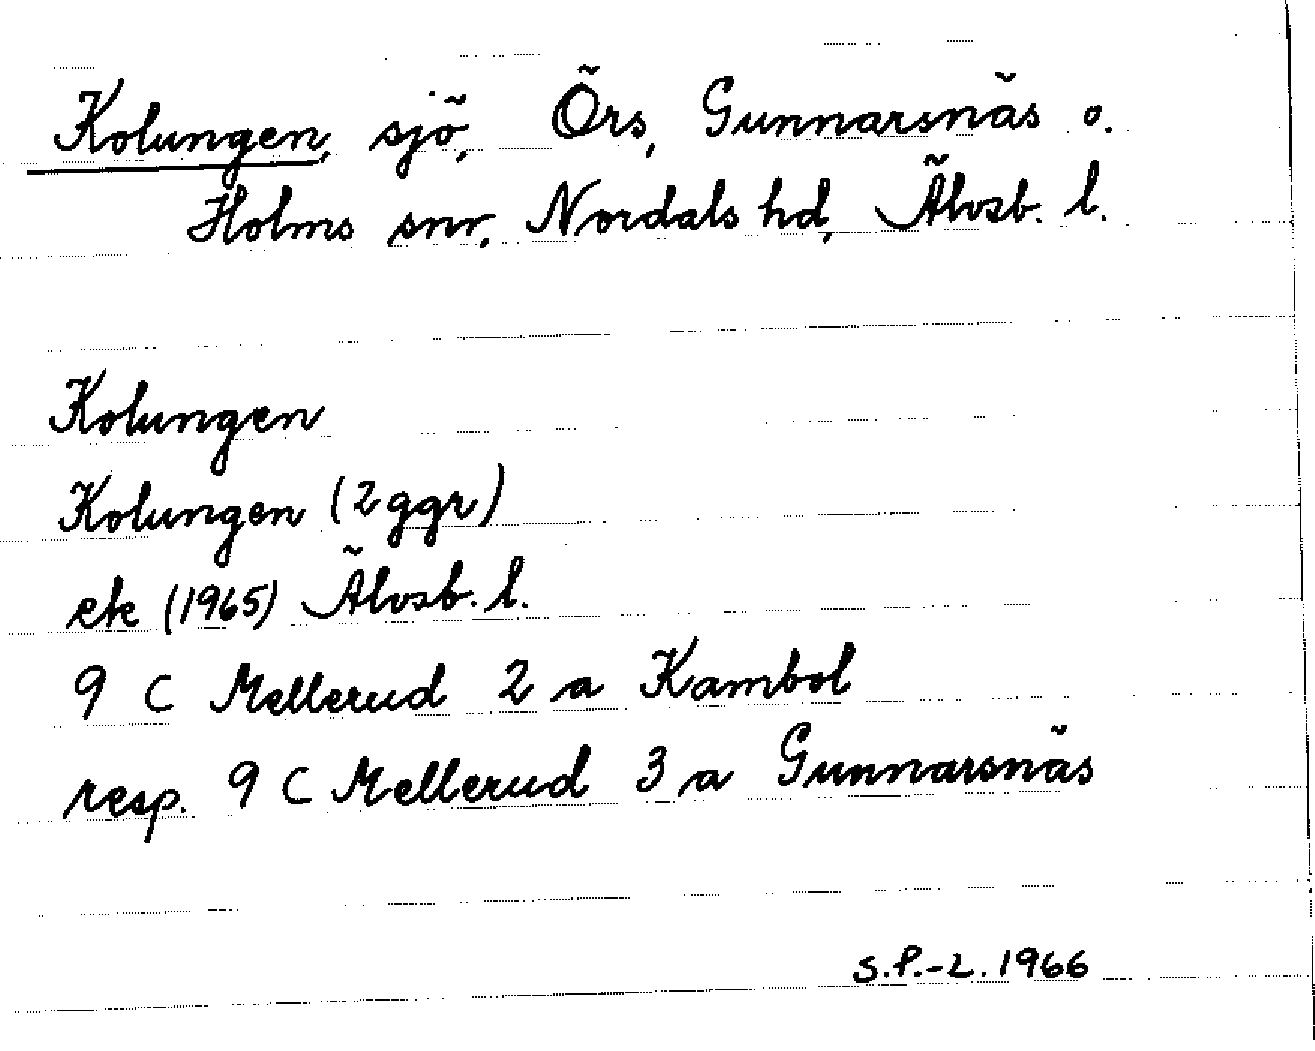 Kolungen, sjö, Örs, Gunnarsnäs o.
Holms snr, Nordals hd, Älvsb. l.
Kolungen
Kolungen (2 ggr)
ek (1965) Älvsb. l.
9 C Mellerud 2 a Kambol
resp. 9 C Mellerud 3 a Gunnarsnäs
S.P.-L. 1966